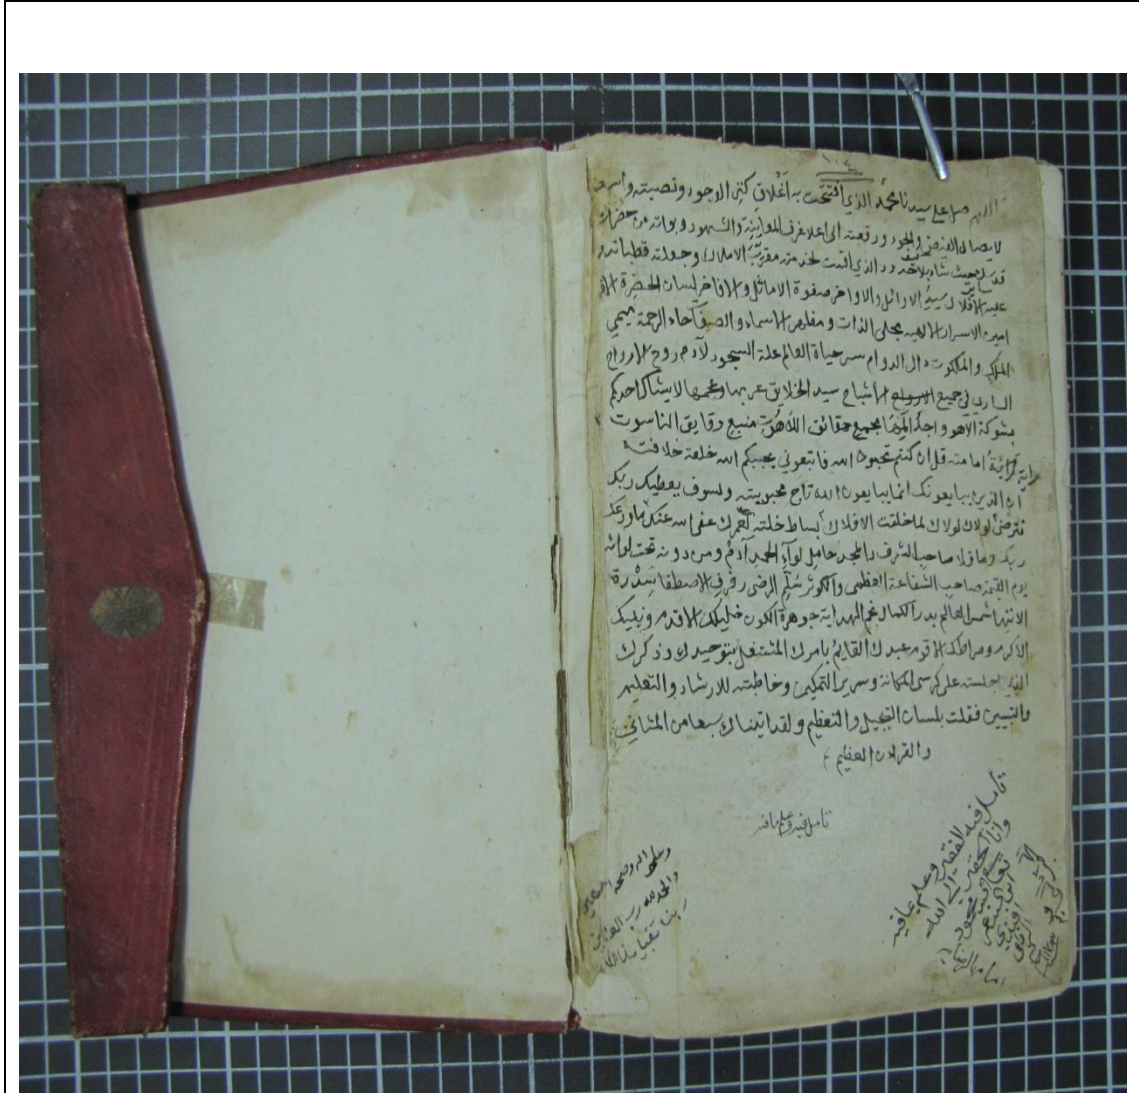 ١٠٤
اللهم صل على سيدنا محمد الذي افتتحت به اغلاق كنز الوجود ونصبته واسطة
لايصال الفيض والجود ورفعته الى اعلا غرف المعاينة والشهود وبواته من حضرات
قدسك بحيث شاء بلا حدود الذي اقمت لخدمته مقرب الاملاك وجعلته قطبا تدور
عليه الافلاك سيد الاوائل والاواخر صفوة الاماثل والافاخر لسان الحضرة
امين الاسرار الالهية مجلى الذات ومظهر الاسماء والصفات حاء الرحمة ميمي
الملك والملكوت دال الدوام سر حياة العالم علة السجود لآدم روح الارواح
الساري في جميع الاشباح سيد الخلايق عربها وعجمها لا يشاك احدكم
بشوكة الا هو واجد المها مجمع حقائق اللاهوت منبع رقايق الناسوت
امامته قل ان كنتم تحبون الله فاتبعوني يحببكم الله خلعة خلافته
ان الذين يبايعونك انما يبايعون الله تاج محبوبيته ولسوف يعطيك ربك
فترضى لولاك لولاك لما خلقت الافلاك بساط خلته لعمرك عفى الله عنك ما ودعك
ربك وما قلا صاحب الشرف والمجد حامل لوآء الحمد آدم ومن دونه تحت لوائه
يوم القيمة صاحب الشفاعة العظمى والكوثر سلم الرضى رفرف الاصطفا سدرة
الانتها شمس العالم بدر الكمال نجم الهداية جوهرة الكون خليلك الاقدم ونبيك
الاكرم وصراطك الاقوم عبدك القايم بامرك المشتغل بتوحيدك وذكرك
الذي اجلسته على كرسي المكانة وسرير التمكين وخاطبته للارشاد والتعليم
والتبيين فقلت بلسان التبجيل والتعظيم ولقد اتيناك سبعا من المثاني
والقرآن العظيم
تامل فيه وعلم ما فيه
وعلى اله وصحبه اجمعين
والحمد لله رب العالمين
ربنا تقبل منا
تأمل فيه الفقير وعلم بما فيه
وانا الحقير الى الله
تعالى